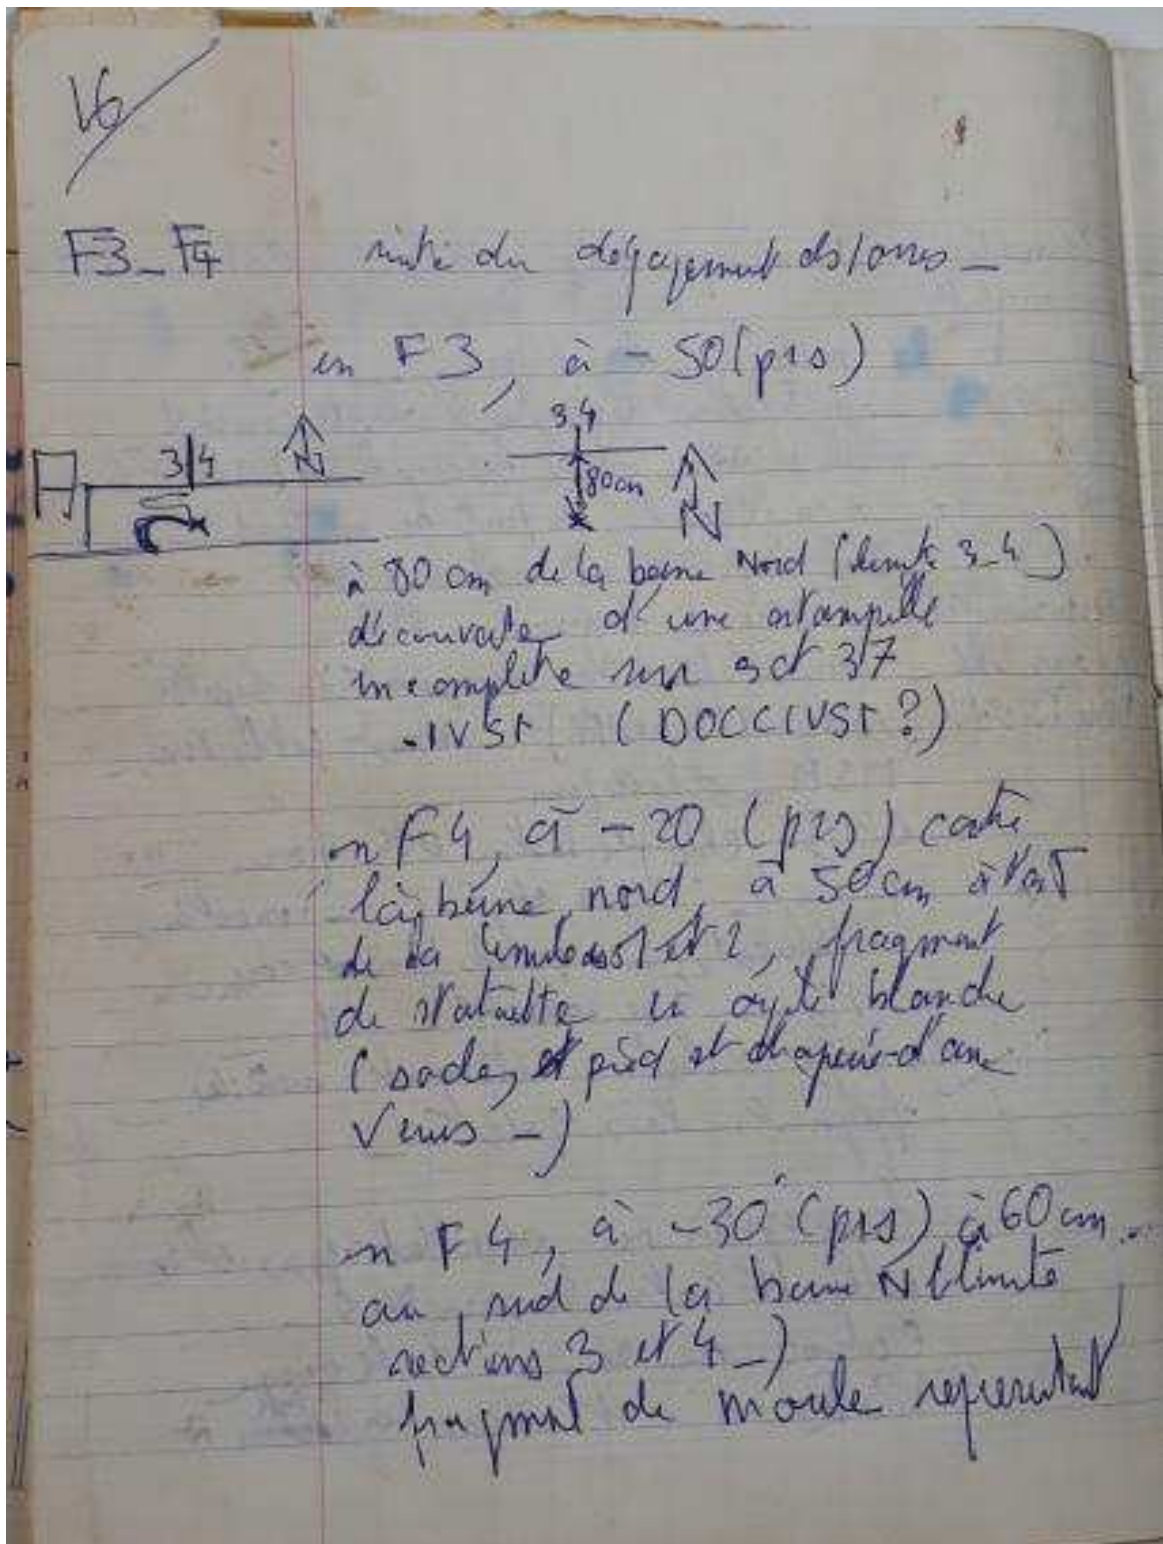 V6
F3-F4 suite du dégagement des fosses -
en F3, à - 50 (prs)
3 4
3 4
N
80cm
N
à 80 cm de la berne Nord (limite 3-4)
découverte d'une estampille
incomplète sur 37
-IVSF (DOCCIVSF ?)
en F4, à - 20 (prs) contre
la berne nord, à 50 cm à l'est
de la limite 1 et 2, fragment
de statuette en argile blanche
(socle, pied et draperie d'une
Venus -)
en F4, à -30 (prs) à 60 cm
au sud de la berne N (limite
sections 3 et 4 -)
fragment de moule représentant